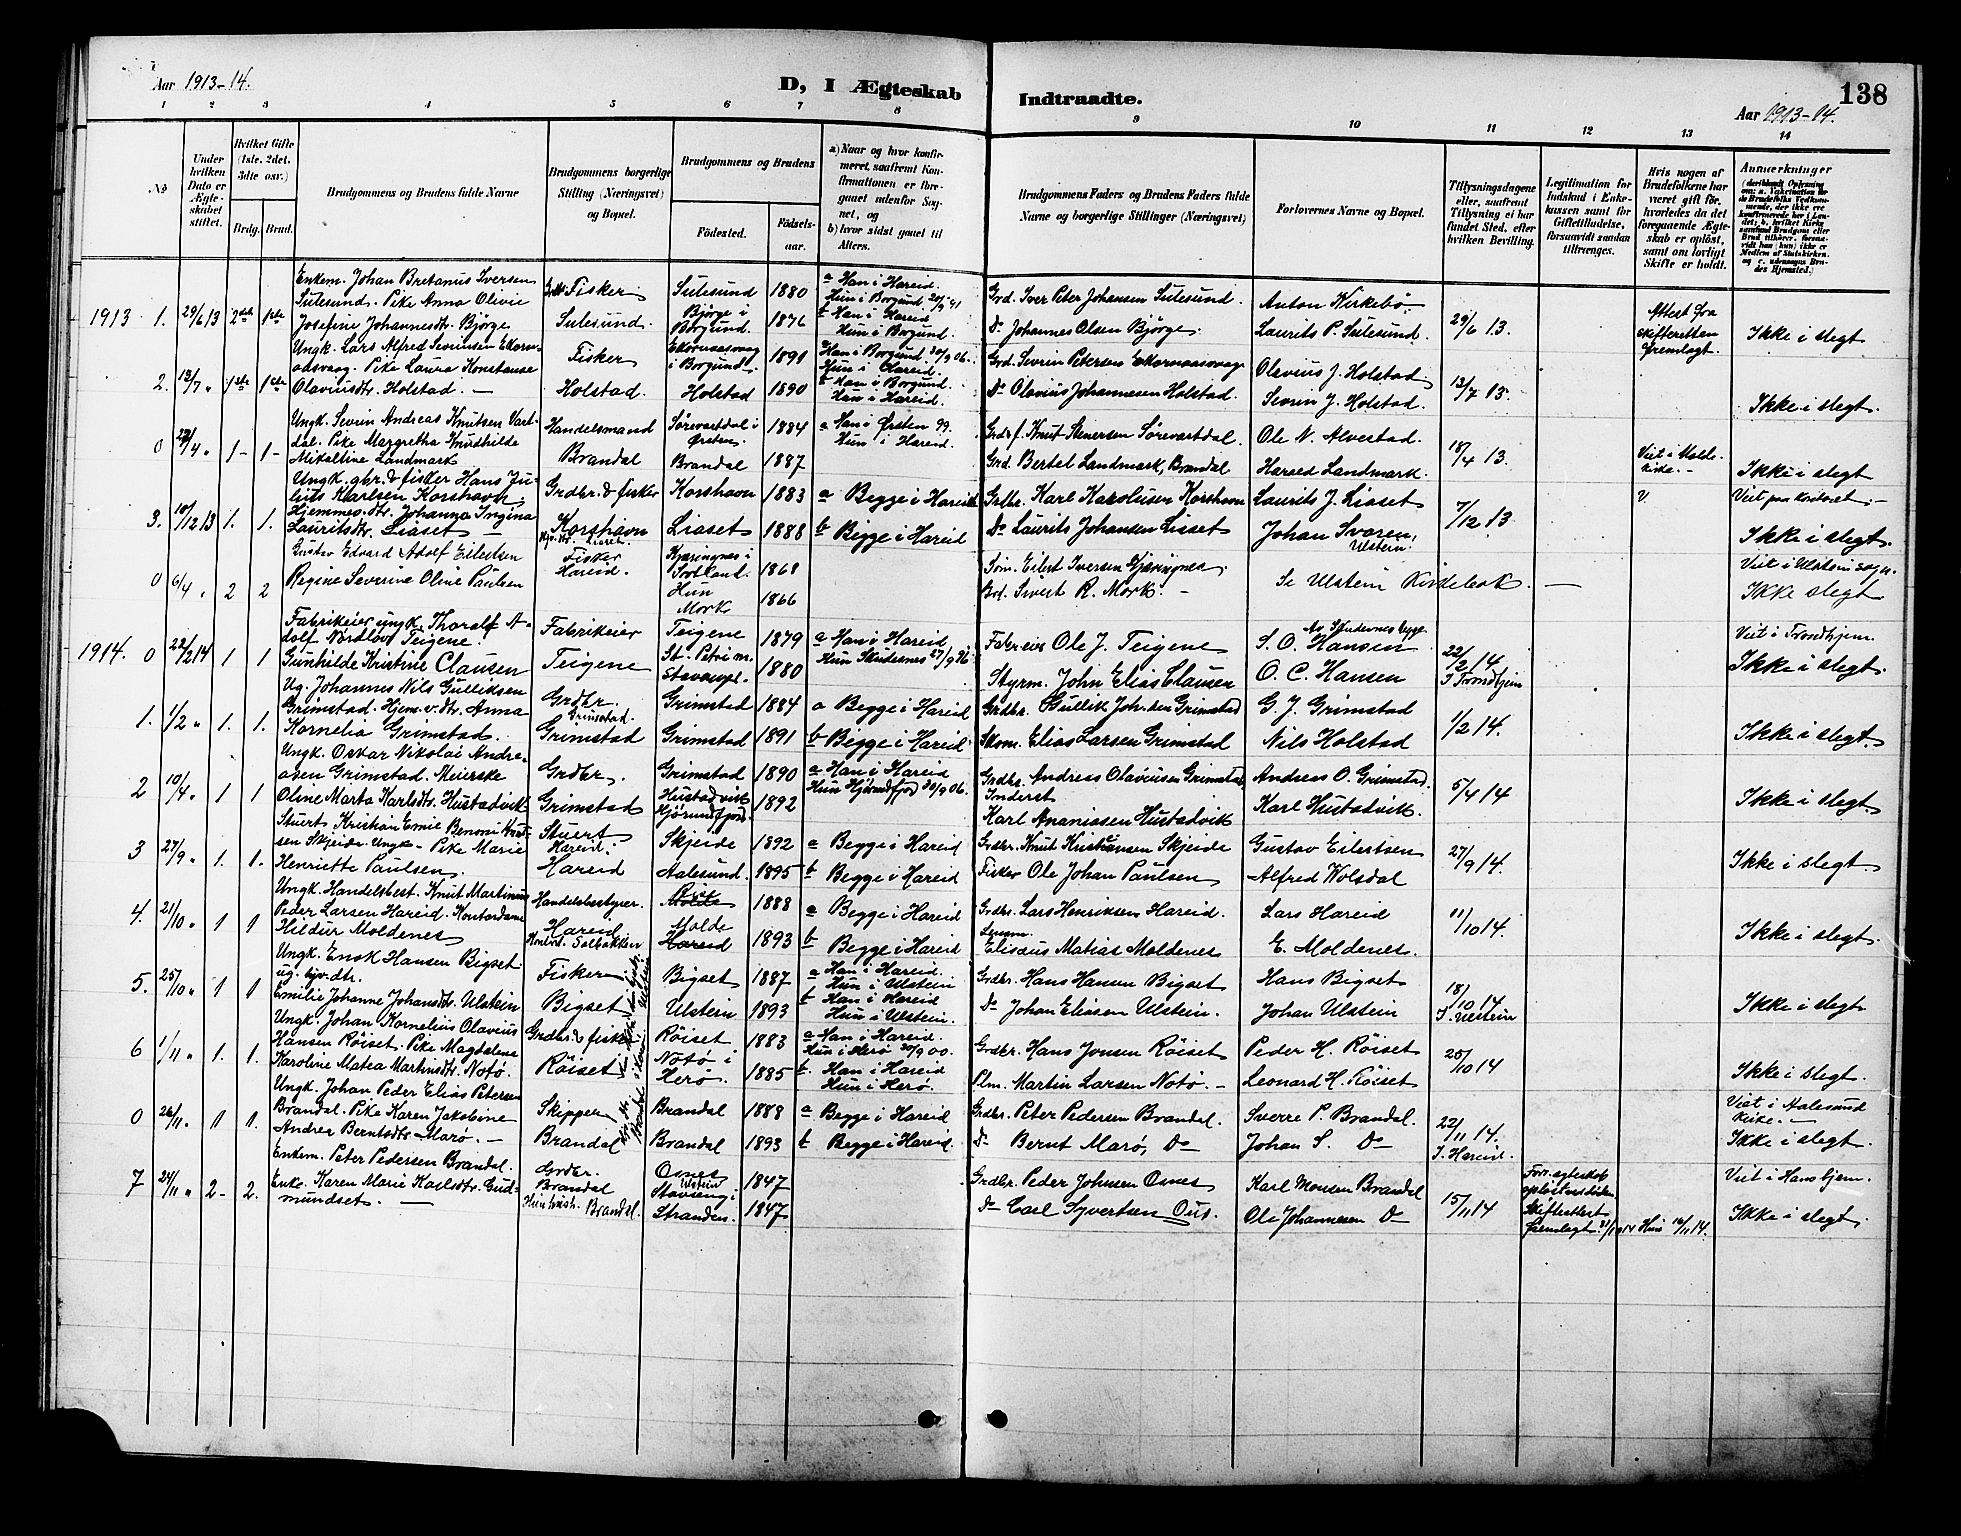 Aar 1913-14.
D, I Ægteskab Indtraadte.
138
Aar 1913-14.
1 2 3 4 5 6 7 8 9 10 11 12 13 14
No
Under hvilken Dato er Ægteskabet stiftet.
Hvilket Gifte (1ste, 2det, 3dte osv.)
Brdg. Brud.
Brudgommens og Brudens fulde Navne
Brudgommens borgerlige Stilling (Næringsvei) og Bopæl.
Brudgommens og Brudens
Fødested.
Fødselsaar.
a) Naar og hvor konfirmeret, saafremt Konfirmationen er foregaaet udenfor Sognet, og
b) hvor sidst gaaet til Alters.
Brudgommens Faders og Brudens Faders fulde Navne og borgerlige Stillinger (Næringsvei)
Forlovernes Navne og Bopæl.
Tillysningsdagene eller, saafremt Tillysning ei har fundet Sted, efter hvilken Bevilling.
Legitimation for Indskud i Enkekassen samt for Giftetilladelse, forsaavidt saadan tiltrænges.
Hvis nogen af Brudefolkene har været gift før, hvorledes da det foregaaende Ægteskab er opløst, samt om lovligt Skifte er holdt.
Anmærkninger
1913 1. 29/6 13 2det 1ste
Enkem. Johan Bretanus Iversen
Sulesund. Pike Anna Olivie
Josefine Johannesdtr. Bjørge
Fisker
Sulesund.
Sulesund 1880
Bjørge i Borgund. 1876
a Han i Hareid
b Han i Hareid
Hun i Borgund.
Grd. Iver Peter Johansen Sulesund.
Do Johannes Olsen Bjørge.
Anton Kirkebø
Laurits P. Sulesund.
29/6 13.
Attest fra skifteretten fremlagt.
Ikke i slegt
2. 13/7 " 1ste 1ste
Ungk. Lars Alfred Severinsen Ekornaasvaag. Pike Laura Konstanse
Olaviusdtr. Holstad. -
Fisker
Holstad.
Ekornaasvaag i Borgund. 1891
Holstad 1890
Han i Borgund 30/9 06.
Hun i Hareid.
b Han i Borgund.
Hun i Hareid.
Grd. Sevrin Petersen Ekornaasvaag
Do Olavius Johannesen Holstad.
Olavius J. Holstad
Sevrin J. Holstad.
13/7 13.
Ikke i slegt.
0 /4 " 1- 1-
Ungk. Sevrin Andreas Knutsen Vartdal. Pike Margretha Knudhilde
Mikaltine Landmark
Handelsmand
Brandal
Sørevartdal i Ørsten. 1884
Brandal 1887
a Han i Ørsten 99.
Hun i Hareid.
Grdbrf. Knut Steversen Sørevartdal.
Grd. Bertel Landmark, Brandal
Ole N. Alvestad.
Harald Landmark.
18/4 13.
Viet i Molde kirke. -
Ikke i slegt
3. 10/12 13 1. 1.
Ungk. gbr. & fisker Hans Julius Karlsen Korshavn.
Hjemmev. dtr. Johanna Ingina
Lauritsdtr. Liaset -
Grdbr. & fisker
Korshavn
Hjv. dtr. Liaset.
Korshavn 1883
Liaset 1888
a Begge i Hareid
b Begge i Hareid
Grdbr. Karl Karolusen Korshavn
Do Laurits Johansen Liaset
Laurits J. Liaset
Johan Svoren, Ulstein.
7/12 13
V.
Viet paa kontoret. -
Ikke i slegt.
0 6/4 " 2 2
Gustav Edvard Adolf Eilertsen
Regine Severine Oline Paulsen
Fisker
Hareid.
Kjæringnes i Sortland. 1868
Hun Mork 1866
Søm. Eilert Iversen Kjæringnes.
Brd. Sivert R. Mork. -
Se Ulstein Kirkebok. -
Viet i Ulstein sogn.
Ikke slegt
1914. 0 22/2 14 1 1
Fabrikeier ungk. Thoralf Adolf Nordlow Teigene.
Gunhilde Kristine Clausen
Fabrikeier
Teigene
Teigene 1879
St. Petri m. Stavanger. 1880
a Han i Hareid
Hun Skudesnes 27/9 96
Fabr.eier Ole J. Teigene
Styrm. John Elias Clausen
S. O. Hansen
O. C. Hansen
22/2 14
I Trondhjem
Viet i Trondhjem.
Ikke i slegt
1. 1/2 " 1. 1.
Ug. Johannes Nils Gulliksen
Grimstad. Hjem. v. dtr. Anna
Kornelia Grimstad.
Grdbr. Grimstad.
Grimstad
Grimstad 1884
Grimstad 1891
a Begge i Hareid
b Begge i Hareid
Grdbr. Gullik Joh.sen Grimstad
Skom. Elias Larsen Grimstad
G. J. Grimstad
Nils Holstad
1/2 14.
Ikke i slegt.
2 10/4 " 1 1
Ungk. Oskar Nikolai Andreasen Grimstad. Meierske
Oline Marta Karlsdtr. Hustadvik
Grdbr.
Grimstad
Grimstad 1890
Hustadvik Hjørundfjord. 1892
a Han i Hareid
Hun Hjørundfjord 30/9 06.
Grdbr. Andreas Olaviusen Grimstad
Inderst
Karl Ananiassen Hustadvik
Andreas O. Grimstad.
Karl Hustadvik.
5/4 14
Ikke i slegt.
3 27/9 " 1. 1.
Stuert Kristian Emie Benoni Knutsen Skjeide. Ungk. - Pike Marie
Henriette Paulsen.
Stuert Hareid.
Hareid
Skjeide 1892
Aalesund. 1895
a Begge i Hareid
b Begge i Hareid
Grdbr. Knut Kristiansen Skjeide
Fisker Ole Johan Paulsen
Gustav Eilertsen
Alfred Wolsdal
27/9 14.
Ikke i slegt.
4. 21/10 " 1 1
Ungk. Handelsbest. Knut Martinus
Peder Larsen Hareid. Kontordame
Hildur Moldenes
Handelsbestyrer.
Hareid
Kontord. Solbakken
Rise 1888
Molde 1893
a Begge i Hareid
b Begge i Hareid
Grdbr. Lars Henriksen Hareid.
Lensm. Eliseus Matias Moldenes
Lars Hareid
E. Moldenes.
11/10 14.
Ikke i slegt.
5. 25/10 " 1 1
Ungk. Ensk Hansen Bigset
ug. hjv. dtr.
Emilie Johanne Johansdtr. Ulstein
Fisker
Bigset
Bigset 1887
Ulstein 1893
a Han i Hareid.
Hun i Ulstein
b Han i Hareid
Hun i Ulstein.
Grdbr. Hans Hansen Bigset
Do Johan Eliasen Ulstein.
Hans Bigset
Johan Ulstein
18/10 14
I. Ulstein
Ikke i slegt
6 1/11 " 1. 1.
Ungk. Johan Kornelius Olavius
Hansen Røiset. Pike Magdalene
Karoline Matea Martinsdtr. Notø.
Grdbr. & fisker
Røiset
Røiset 1883
Notø i Herø. 1885
a Han i Hareid.
Hun i Herø 30/9 00.
b. Han i Hareid
Hun i Herø.
Grdbr. Hans Jonsen Røiset
Plm. Martin Larsen Notø. -
Peder H. Røiset
Leonard H. Røiset
25/10 14
Ikke i slegt.
0 26/11 " 1 1.
Ungk. Johan Peder Elias Petersen
Brandal. Pike Karen Jakobine
Andrea Berntsdtr. Marø. -
Skipper
Brandal
Brandal 1888
Brandal 1893
a Begge i Hareid
b Begge i Hareid.
Grdbr. Peter Pedersen Brandal.
Do Bernt Marø, Do
Sverre P. Brandal.
Johan S. Do
22/11 14.
I. Hareid.
Viet i Aalesund Kirke. -
Ikke i slegt.
7 24/11 " 2- 2.
Enkem. Peter Pedersen Brandal.
Enke Karen Marie Karlsdtr. Gudmundset. -
Grdbr.
Brandal
Brandal.
Osnes Ulstein 1847
Stavseng i Stranden. 1847
Grdbr. Peder Johnsen Osnes
Do Carl Syvertsen Ous.
Karl Monsen Brandal
Ole Johannesen Do
15/11 14
Forr. egteskab opløst ved døden
Skifteattest fremlagt. Hun 16/11 14.
Viet i Hans hjem.
Ikke i slegt.